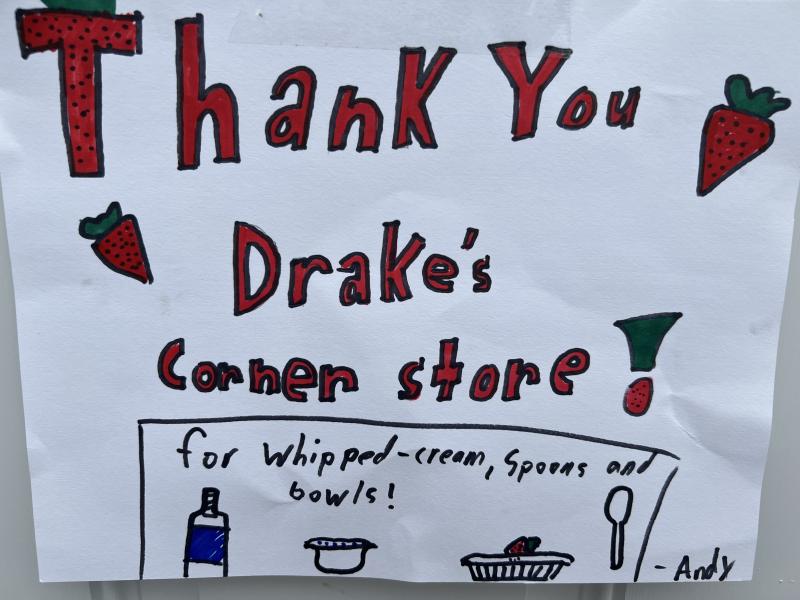 Thank You
Drake's
Corner store!
for whipped-cream, Spoons and
bowls!
- Andy